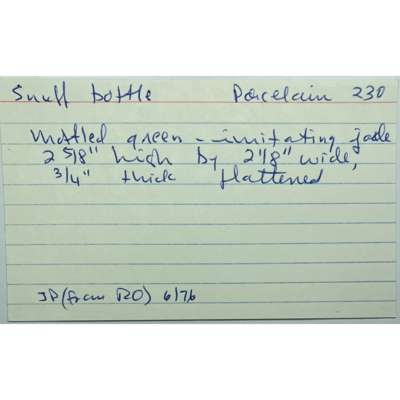 Snuff bottle Porcelain 230
Mottled green - imitating jade
2 5/8" high by 2 1/8" wide,
3/4" thick flattened
JP (from RO) 6/76